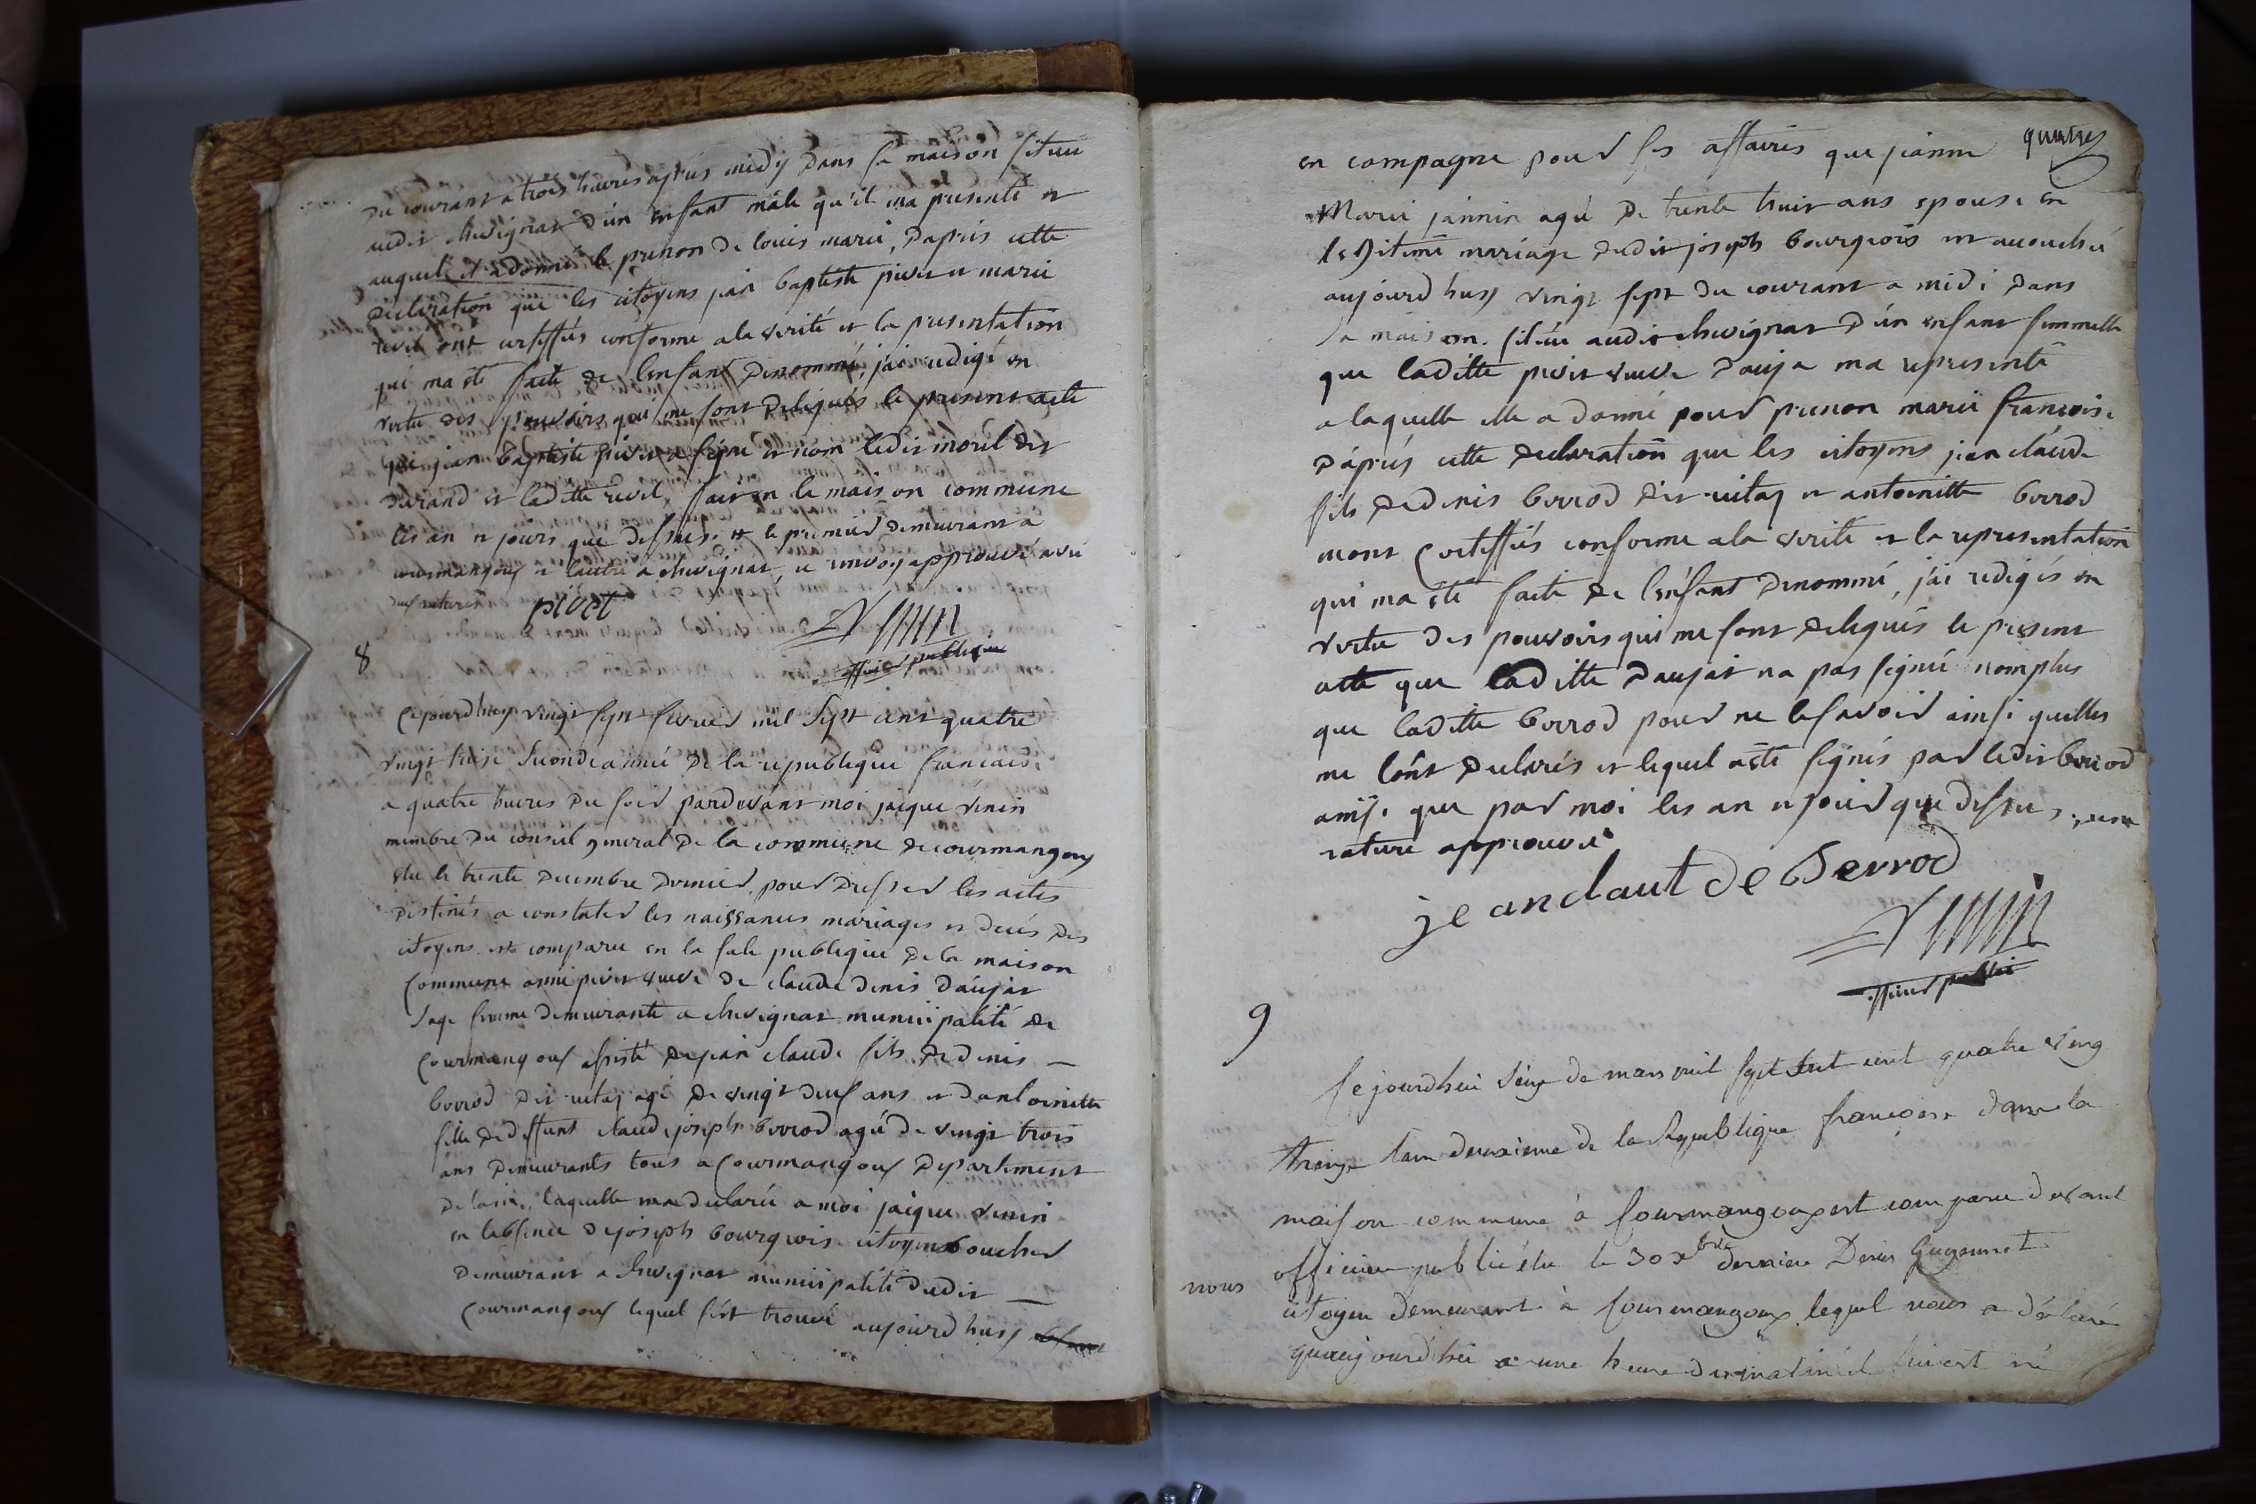 du courant a trois heures apres midy dans sa maison situee
audit chevignat d'un enfant mâle qu'il ma presenté et
auquel il a donné le prenon de louis marie, d'apris cette
déclaration que les citoyens jean baptiste pivet et marie
revel ont certiffiés conforme a la verité et la presentation
qui ma eté faite de l'enfant denommé, j'ai redigé en
vertu des pouvoirs qui me sont delegués le present acte
que jean baptiste pivet a signé et non ledit morel dit
durand et laditte revel, fait en la maison commune
les an et jours que dessus. et le premier demeurant a
courmangoux et l'autre a chevignat, ce renvoy approuvé avec
pivet
officier publique
8
Cejourdhuy vingt sept fevrier mil sept cent quatre
vingt treise seconde année de la republique francaise
a quatre heures du soir pardevant moi jaique venin
membre du conseil general de la commune de courmangoux
elu le trente decembre dernier pour dresser les actes
destinés a constater les naissances mariages et decés des
citoyens est comparu en la sale publique de la maison
Commune anne pivet veuve de claude denis daujat
sage femme demeurante a chevignat municipalité de
Courmangoux assisté de jean claude fils de denis —
borrod dit vitaz agé de vingt deux ans et d'antoinette
fille de deffunt claude joseph borrod agé de vingt trois
ans demeurants tous a Courmangoux departement
de l'ain, laquelle ma declaré a moi jaique venin
en l'absence de joseph bourgeois citoyen boucher
demeurant a chevignat municipalité dudit —
Courmangoux lequel s'est trouvé aujourd huy
quatre
en compagne pour ses affaires que jeanne
Marie jannin agé de trente huit ans epouse en
legitime mariage dudit joseph bourgeois et accouché
aujourd huy vingt sept du courant a midi dans
sa maison situee audit chevignat d'un enfant femmelle
que laditte pivet veuve daujat ma representé
a laquelle elle a donné pour prenon marie francoise
d'apris cette declaration que les citoyens jean claude
fils de denis borrod dit vitaz et antoinette borrod
mont certiffiés conforme a la verité et la representation
qui ma eté faite de l'enfant denommé, j'ai redigés en
vertu des pouvoirs qui me sont delegués le present
acte que laditte daujat na pas signé nomplus
que laditte borrod pour ne le savoir ainsi quelles
me l'ont declarés et lequel a eté signés par ledit borrod
ainsi que par moi les an et jour que dessus, une
rature approuvé
jeanclaut de Berrod
officier public
9
Cejourdhui seize de mars mil sept cent quatre ving
treize l'an deuxieme de la Republique françoise dans la
maison commune à Courmangoux est comparu devant
nous officier public élu le 30 xbre dernier Denis Guyonnet
citoyen demeurant à Courmangoux lequel nous a déclaré
quaujourdhui a une heure du matin il lui est né